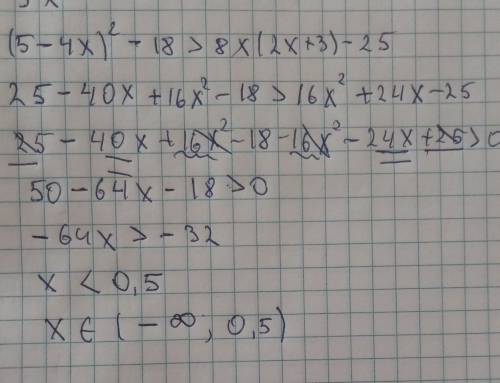 (5-4x)² - 18 > 8x(2x+3) - 25
25 - 40x + 16x² - 18 > 16x² + 24x - 25
25 - 40x + 16x² - 18 - 16x² - 24x + 25 > 0
50 - 64x - 18 > 0
-64x > -32
x < 0,5
x ∈ (-∞; 0,5)